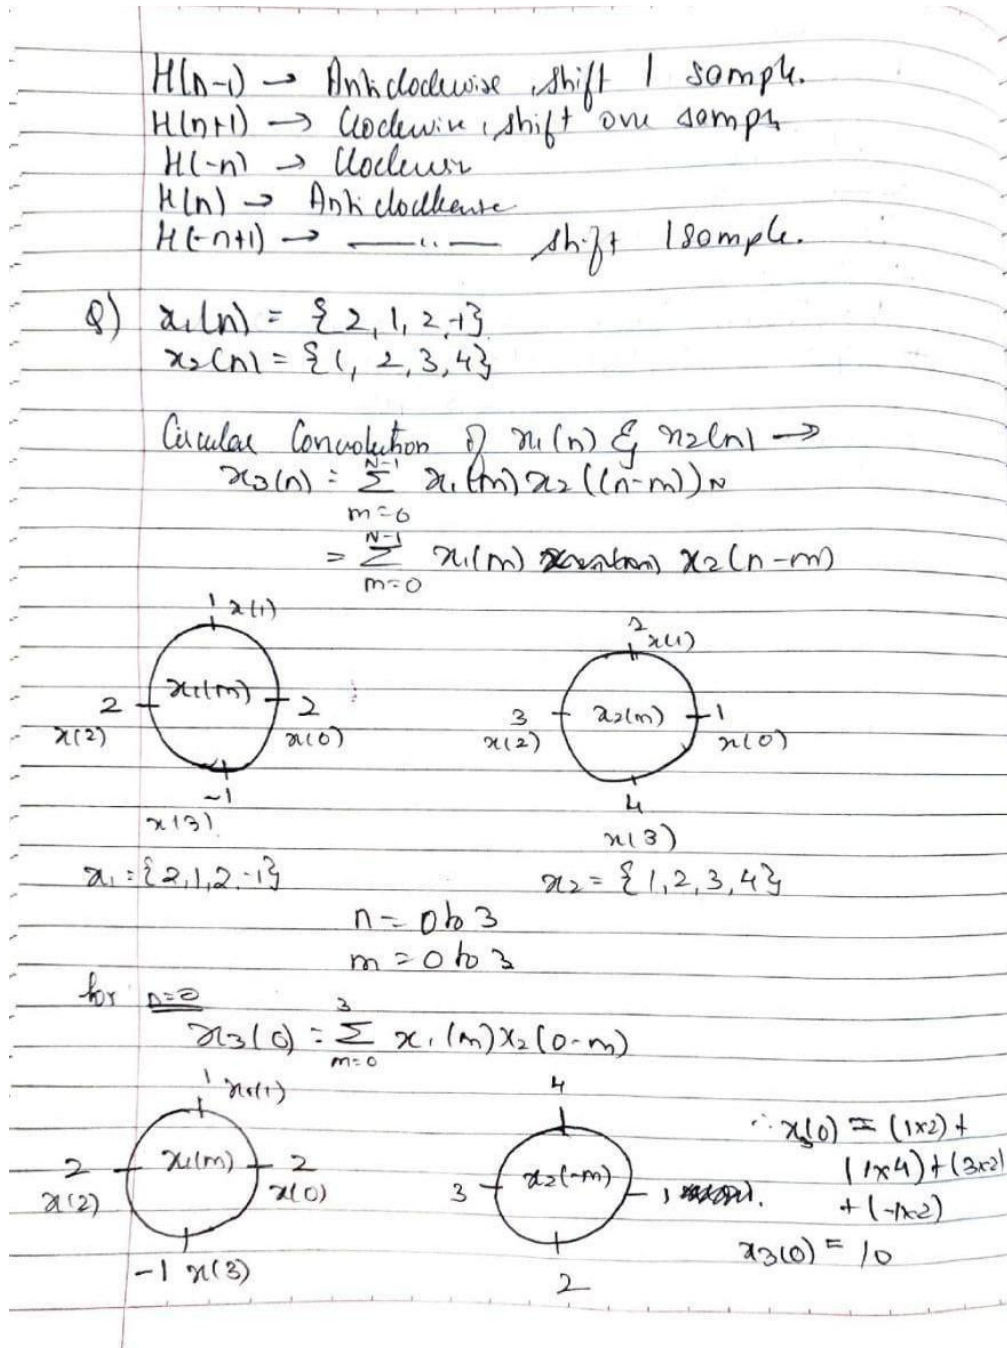 H(n-1) → Anticlockwise, shift 1 sample.
H(n+1) → Clockwise, shift one sample
H(-n) → Clockwise
H(n) → Anticlockwise
H(-n+1) → —..— shift 1 sample.
Q) x₁(n) = {2, 1, 2, -1}
x₂(n) = {1, 2, 3, 4}
Circular Convolution of x₁(n) & x₂(n) →
N-1
x₃(n) = Σ x₁(m) x₂((n-m))N
m=0
N-1
= Σ x₁(m) x₂(n-m)
m=0
1 x(1)
2 x(1)
x₁(m)
x₂(m)
2 x(2)
2 x(0)
3 x(2)
1 x(0)
-1 x(3)
4 x(3)
x₁ = {2, 1, 2, -1} x₂ = {1, 2, 3, 4}
n = 0 to 3
m = 0 to 3
for n=0
3
x₃(0) = Σ x₁(m) x₂(0-m)
m=0
1 x₁(1)
4
x₁(m)
x₂(-m)
2 x(2)
2 x(0)
3
1
-1 x(3)
2
∴ x₃(0) = (1x2) +
(1x4) + (3x2)
+ (-1x2)
x₃(0) = 10